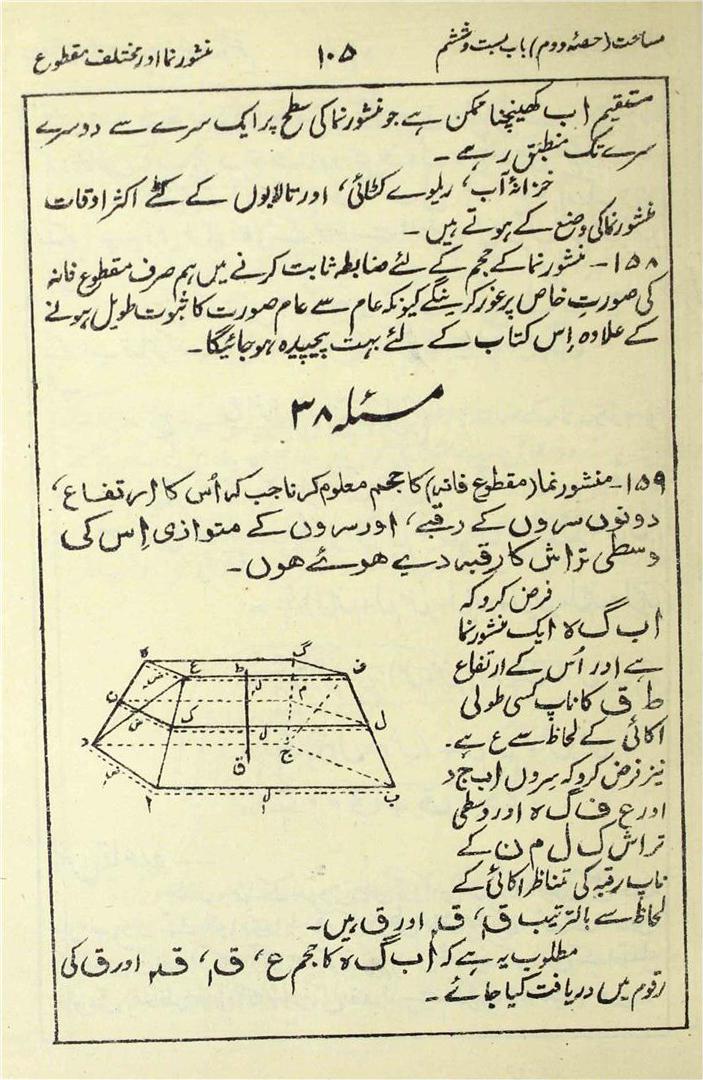 مساحت (حصۂ دوم) باب بست و ششم
۱۰۵
منشور نما اور مختلف مقطوع
مستقیم ا ب کھینچنا ممکن ہے جو منشور نما کی سطح پر ایک سرے سے دوسرے
سرے تک منطبق رہے ۔
خزانۂ آب، ریلوے کٹائی، اور تالابوں کے کٹے اکثر اوقات
منشور نما کی وضع کے ہوتے ہیں ۔
۱۵۸ ۔ منشور نما کے حجم کے لئے ضابطہ ثابت کرنے میں ہم صرف مقطوع فانہ
کی صورتِ خاص پر غور کرینگے کیونکہ عام سے عام صورت کا ثبوت طویل ہونے
کے علاوہ اِس کتاب کے لئے بہت پیچیدہ ہو جائیگا ۔
مسئلہ ۳۸
۱۵۹ ۔ منشور نما (مقطوع فانہ) کا حجم معلوم کرنا جب کہ اُس کا ارتفاع،
دونوں سروں کے رقبے، اور سروں کے متوازی اِس کی
وسطی تراش کا رقبہ دیے ہوئے ہوں ۔
فرض کرو کہ
ا ب گ ہ ایک منشور نما
ہے اور اُس کے ارتفاع
ط ق کا ناپ کسی طولی
اکائی کے لحاظ سے ع ہے ۔
نیز فرض کرو کہ سروں ا ب ج د
اور ع ف گ ہ اور وسطی
تراش ک ل م ن کے
ناپ رقبہ کی متناظر اکائی کے
لحاظ سے بالترتیب ق۱، ق۲ اور ق ہیں ۔
مطلوب یہ ہے کہ ا ب گ ہ کا حجم ع، ق۱، ق۲ اور ق کی
رقوم میں دریافت کیا جائے ۔
ہ
ع
ط
گ
ف
ن
ک
ل
م
ل
د
ق
ج
ا
ل
ب